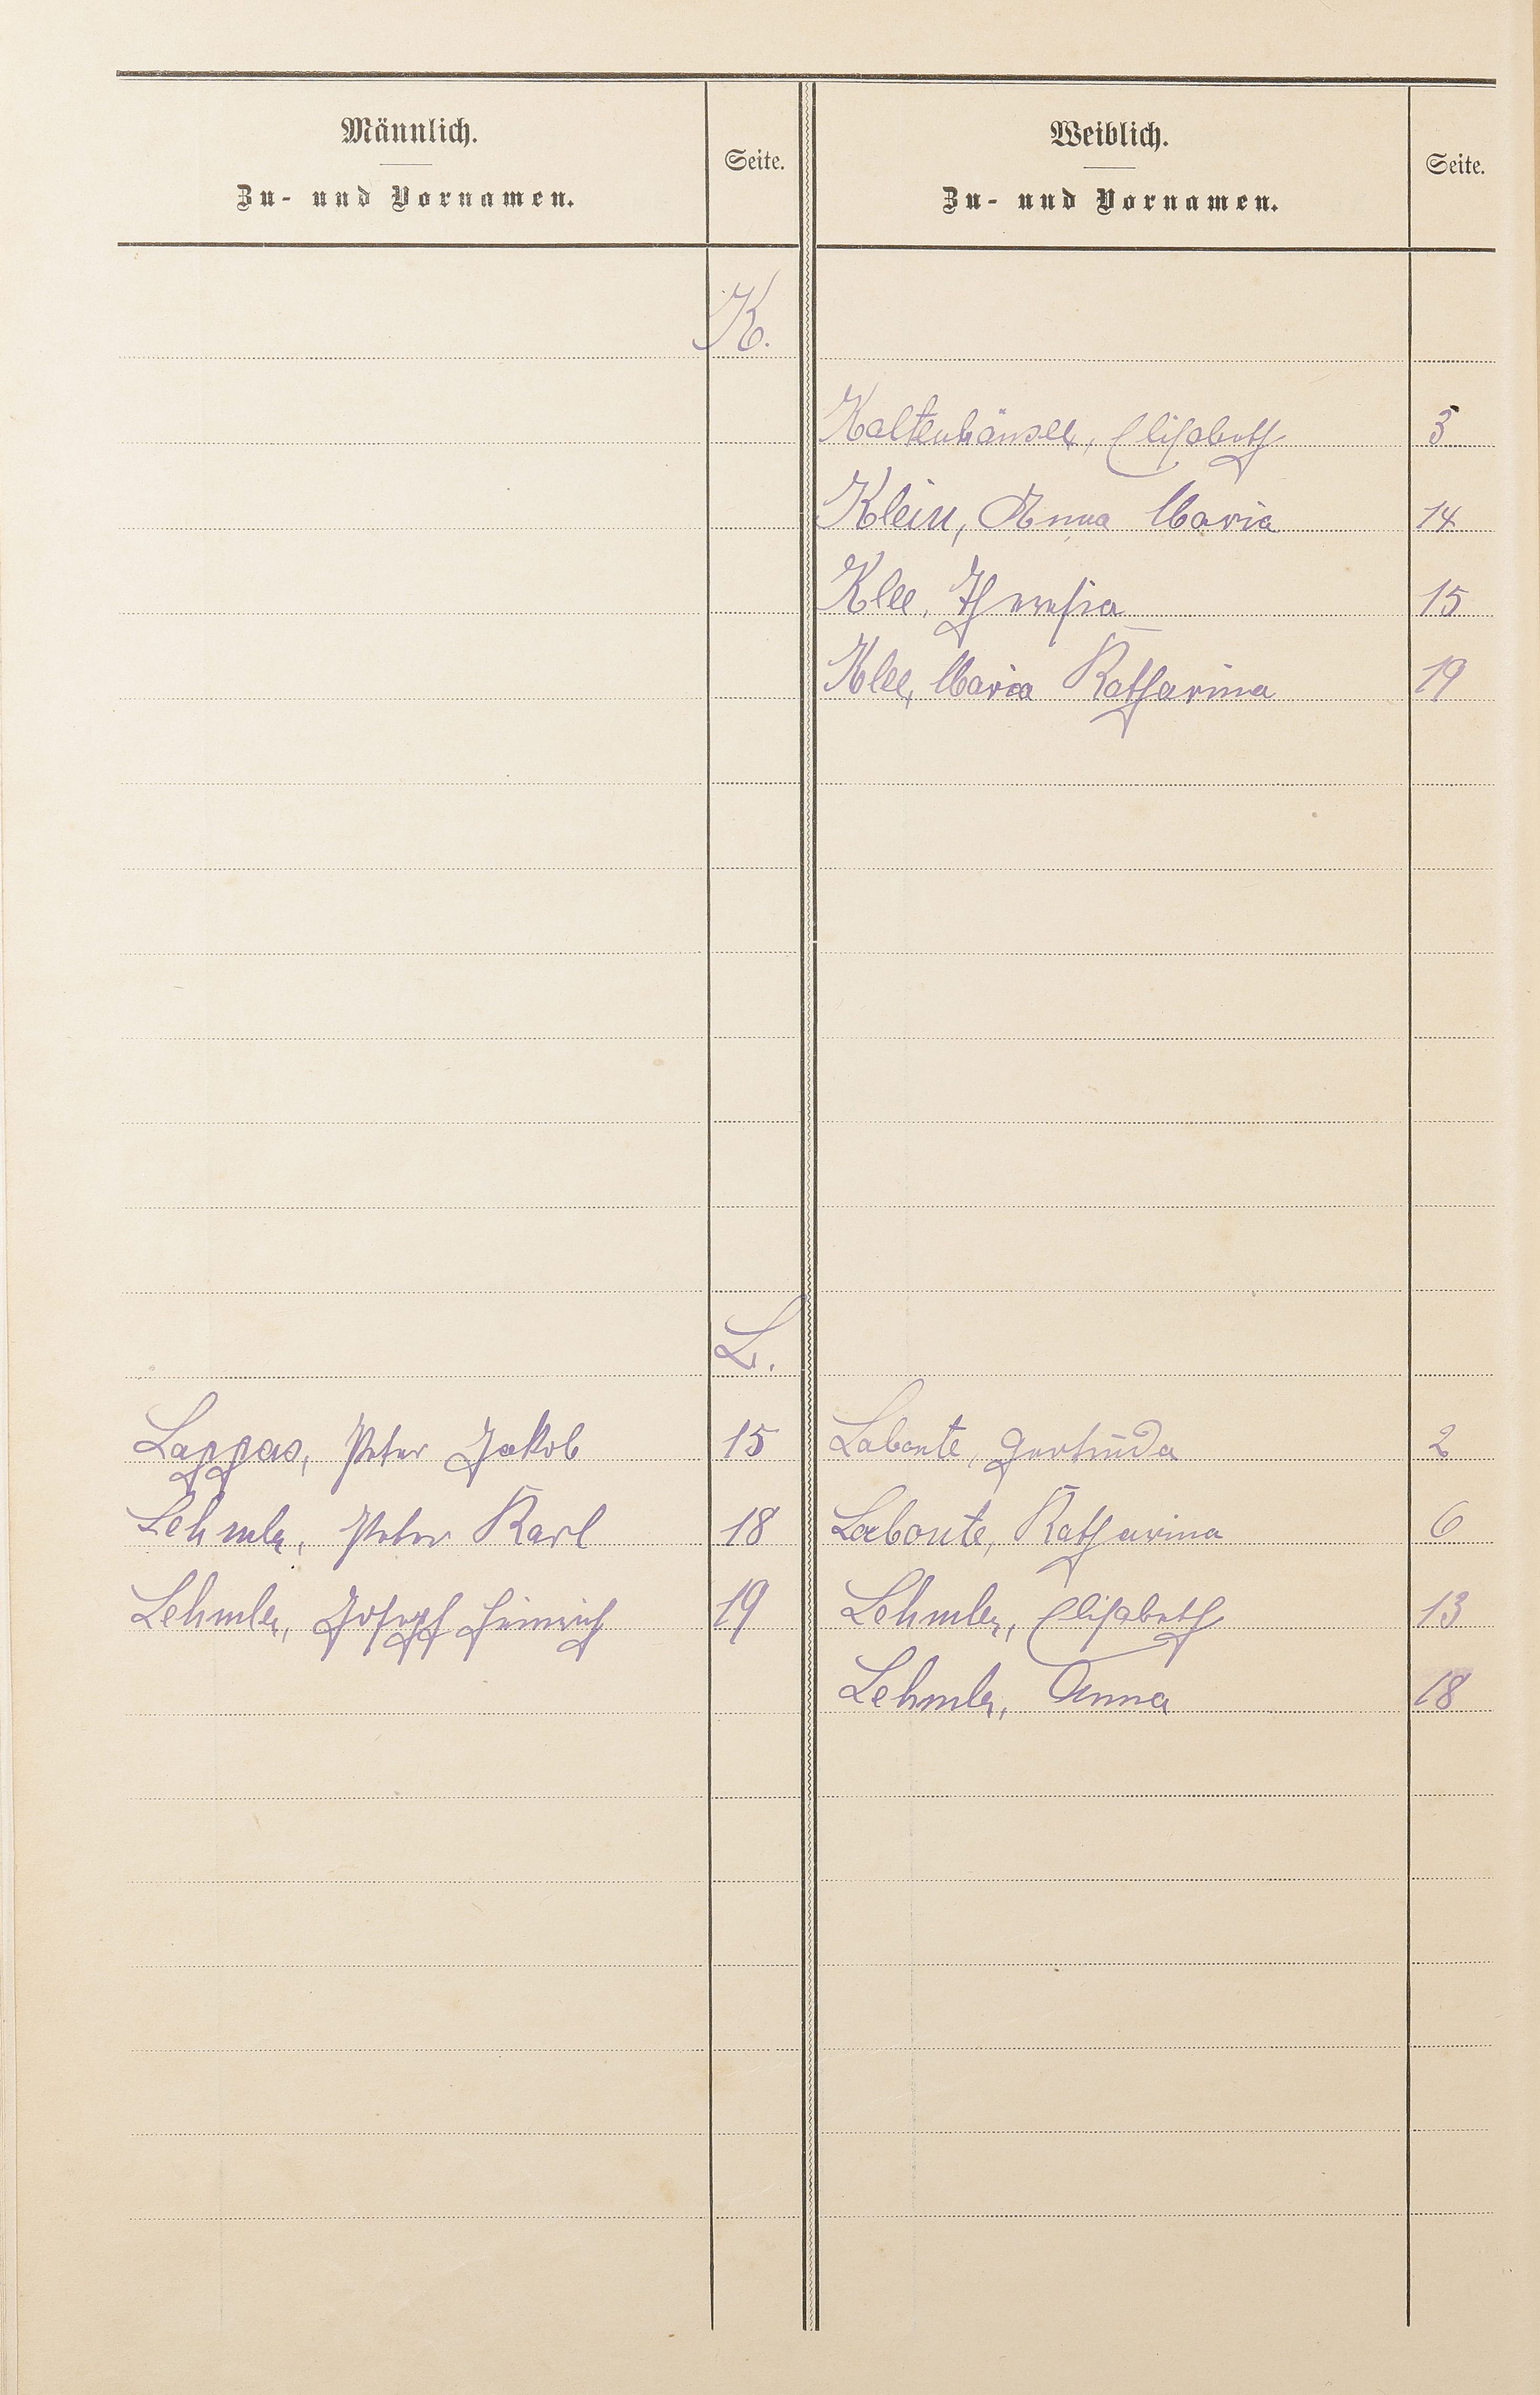 Männlich.
Zu- und Vornamen.
Seite.
Weiblich.
Zu- und Vornamen.
Seite.
K.
Kaltenhäuser, Elisabeth 3
Klein, Anna Maria 14
Klee, Theresia 15
Klee, Maria Katharina 19
L.
Lappas, Peter Jakob 15 Labonte, Gertruda 2
Lehmler, Peter Karl 18 Labonte, Katharina 6
Lehmler, Joseph Heinrich 19 Lehmler, Elisabeth 13
Lehmler, Anna 18